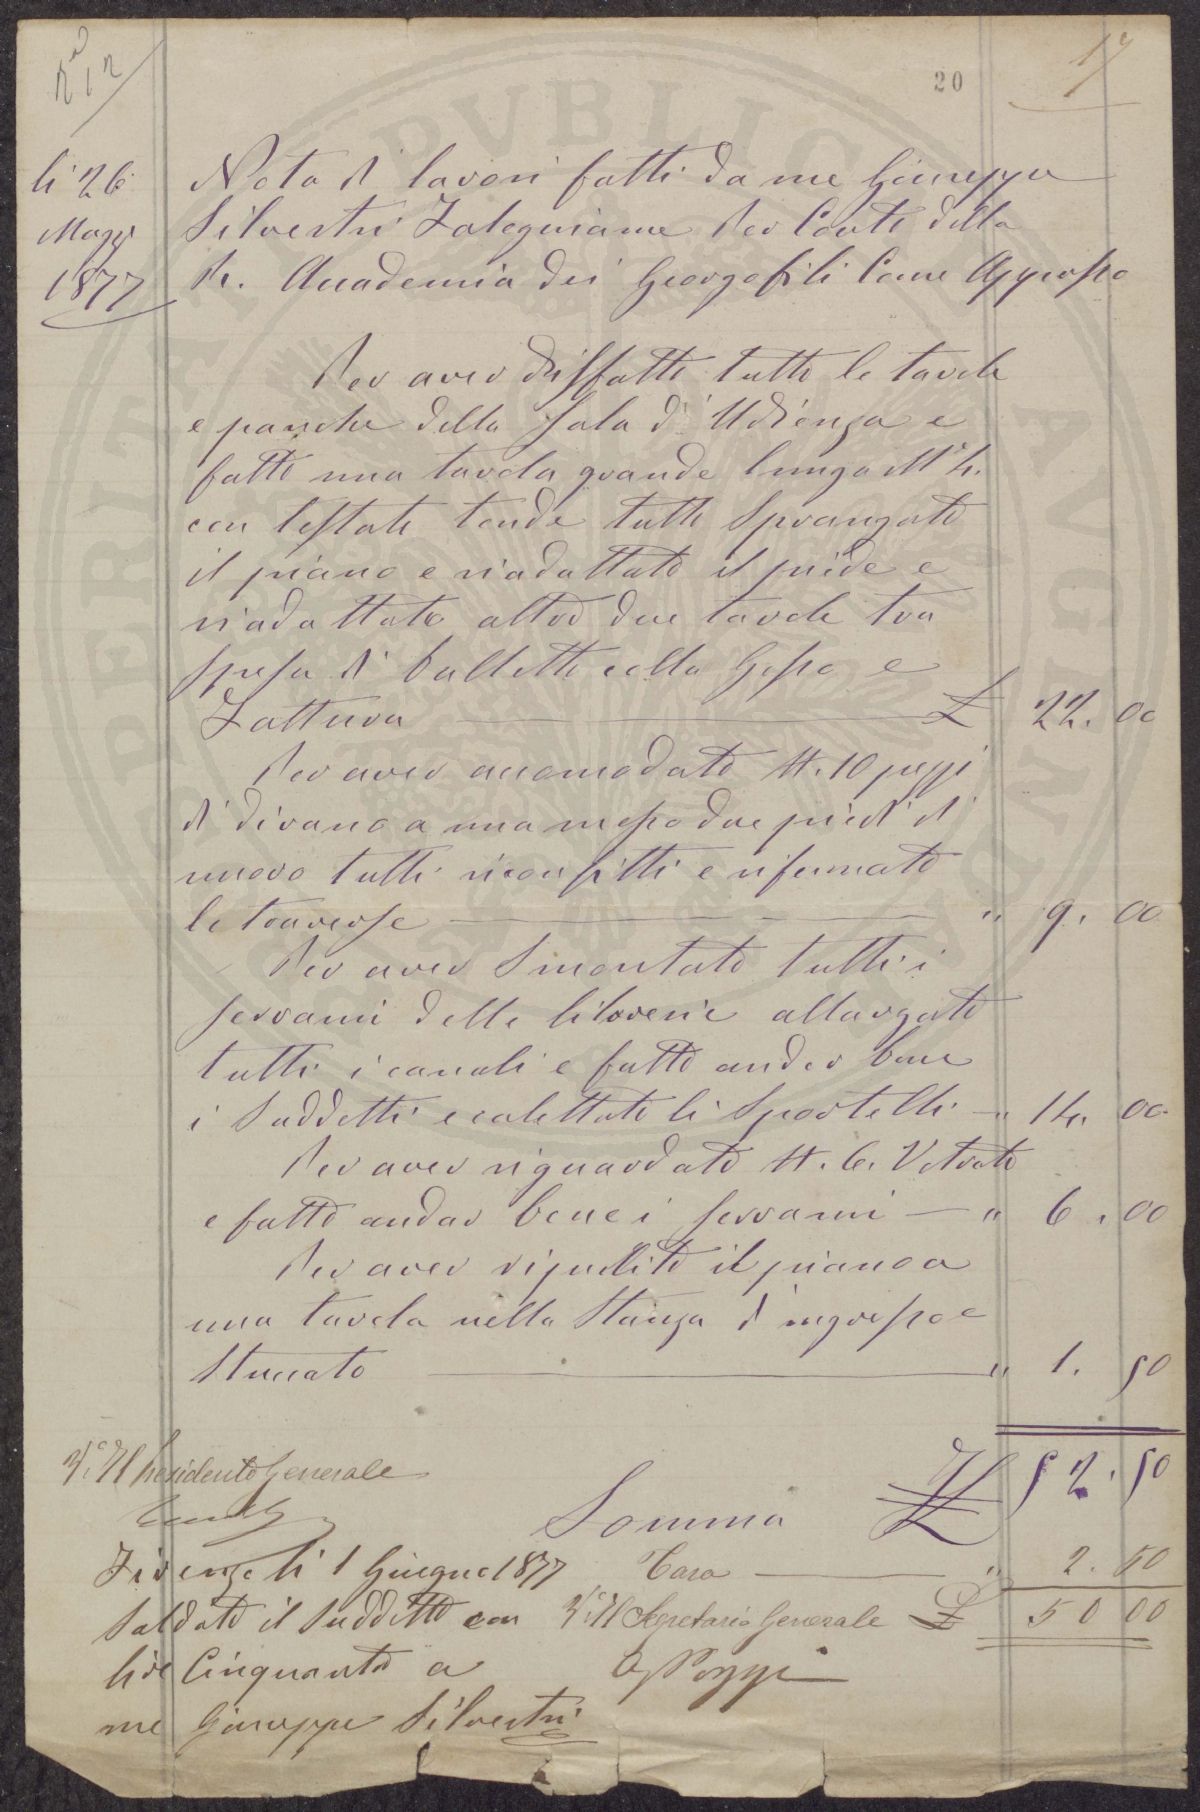 20
17
li 26 Nota di lavori fatti da me Giuseppe
Maggi Silvestri Falegniame Per Conto della
1877 R. Accademia dei Georgofili Come Appresso
Per aver disffatto tutte le tavole
e panche della Sala d'Udienza e
fatto una tavola grande lunga M. 4.
con testate tonde tutte Sprangato
il piano e riadattato il piede e
riadattato altre due tavole tra
spesa di bullette colla Gesso e
Fattura £ 22. 00
Per aver accomodato N. 10 pezzi
di divano a una messo due piedi di
nuovo tutti riconfitti e rifermato
le traverse " 9. 00
Per aver Smontato tutti i
serrami delle librerie allargato
tutti i canali e fatto andar bene
i Suddetti e calettato li Sportelli " 14. 00
Per aver riguardato N. 6. Vetrate
e fatto andar bene i serrami " 6. 00
Per aver ripulito il piano a
una tavola nella Stanza d'ingresso e
Stuccato " 1. 50
Vº Il Presidente Generale
Somma £ 52. 50
Firenze li 1 Giugno 1877 Tara " 2. 50
Saldato il Suddetto con Vº Il Segretario Generale £ 50 00
lire Cinquanta a Poggi
me Giuseppe Silvestri